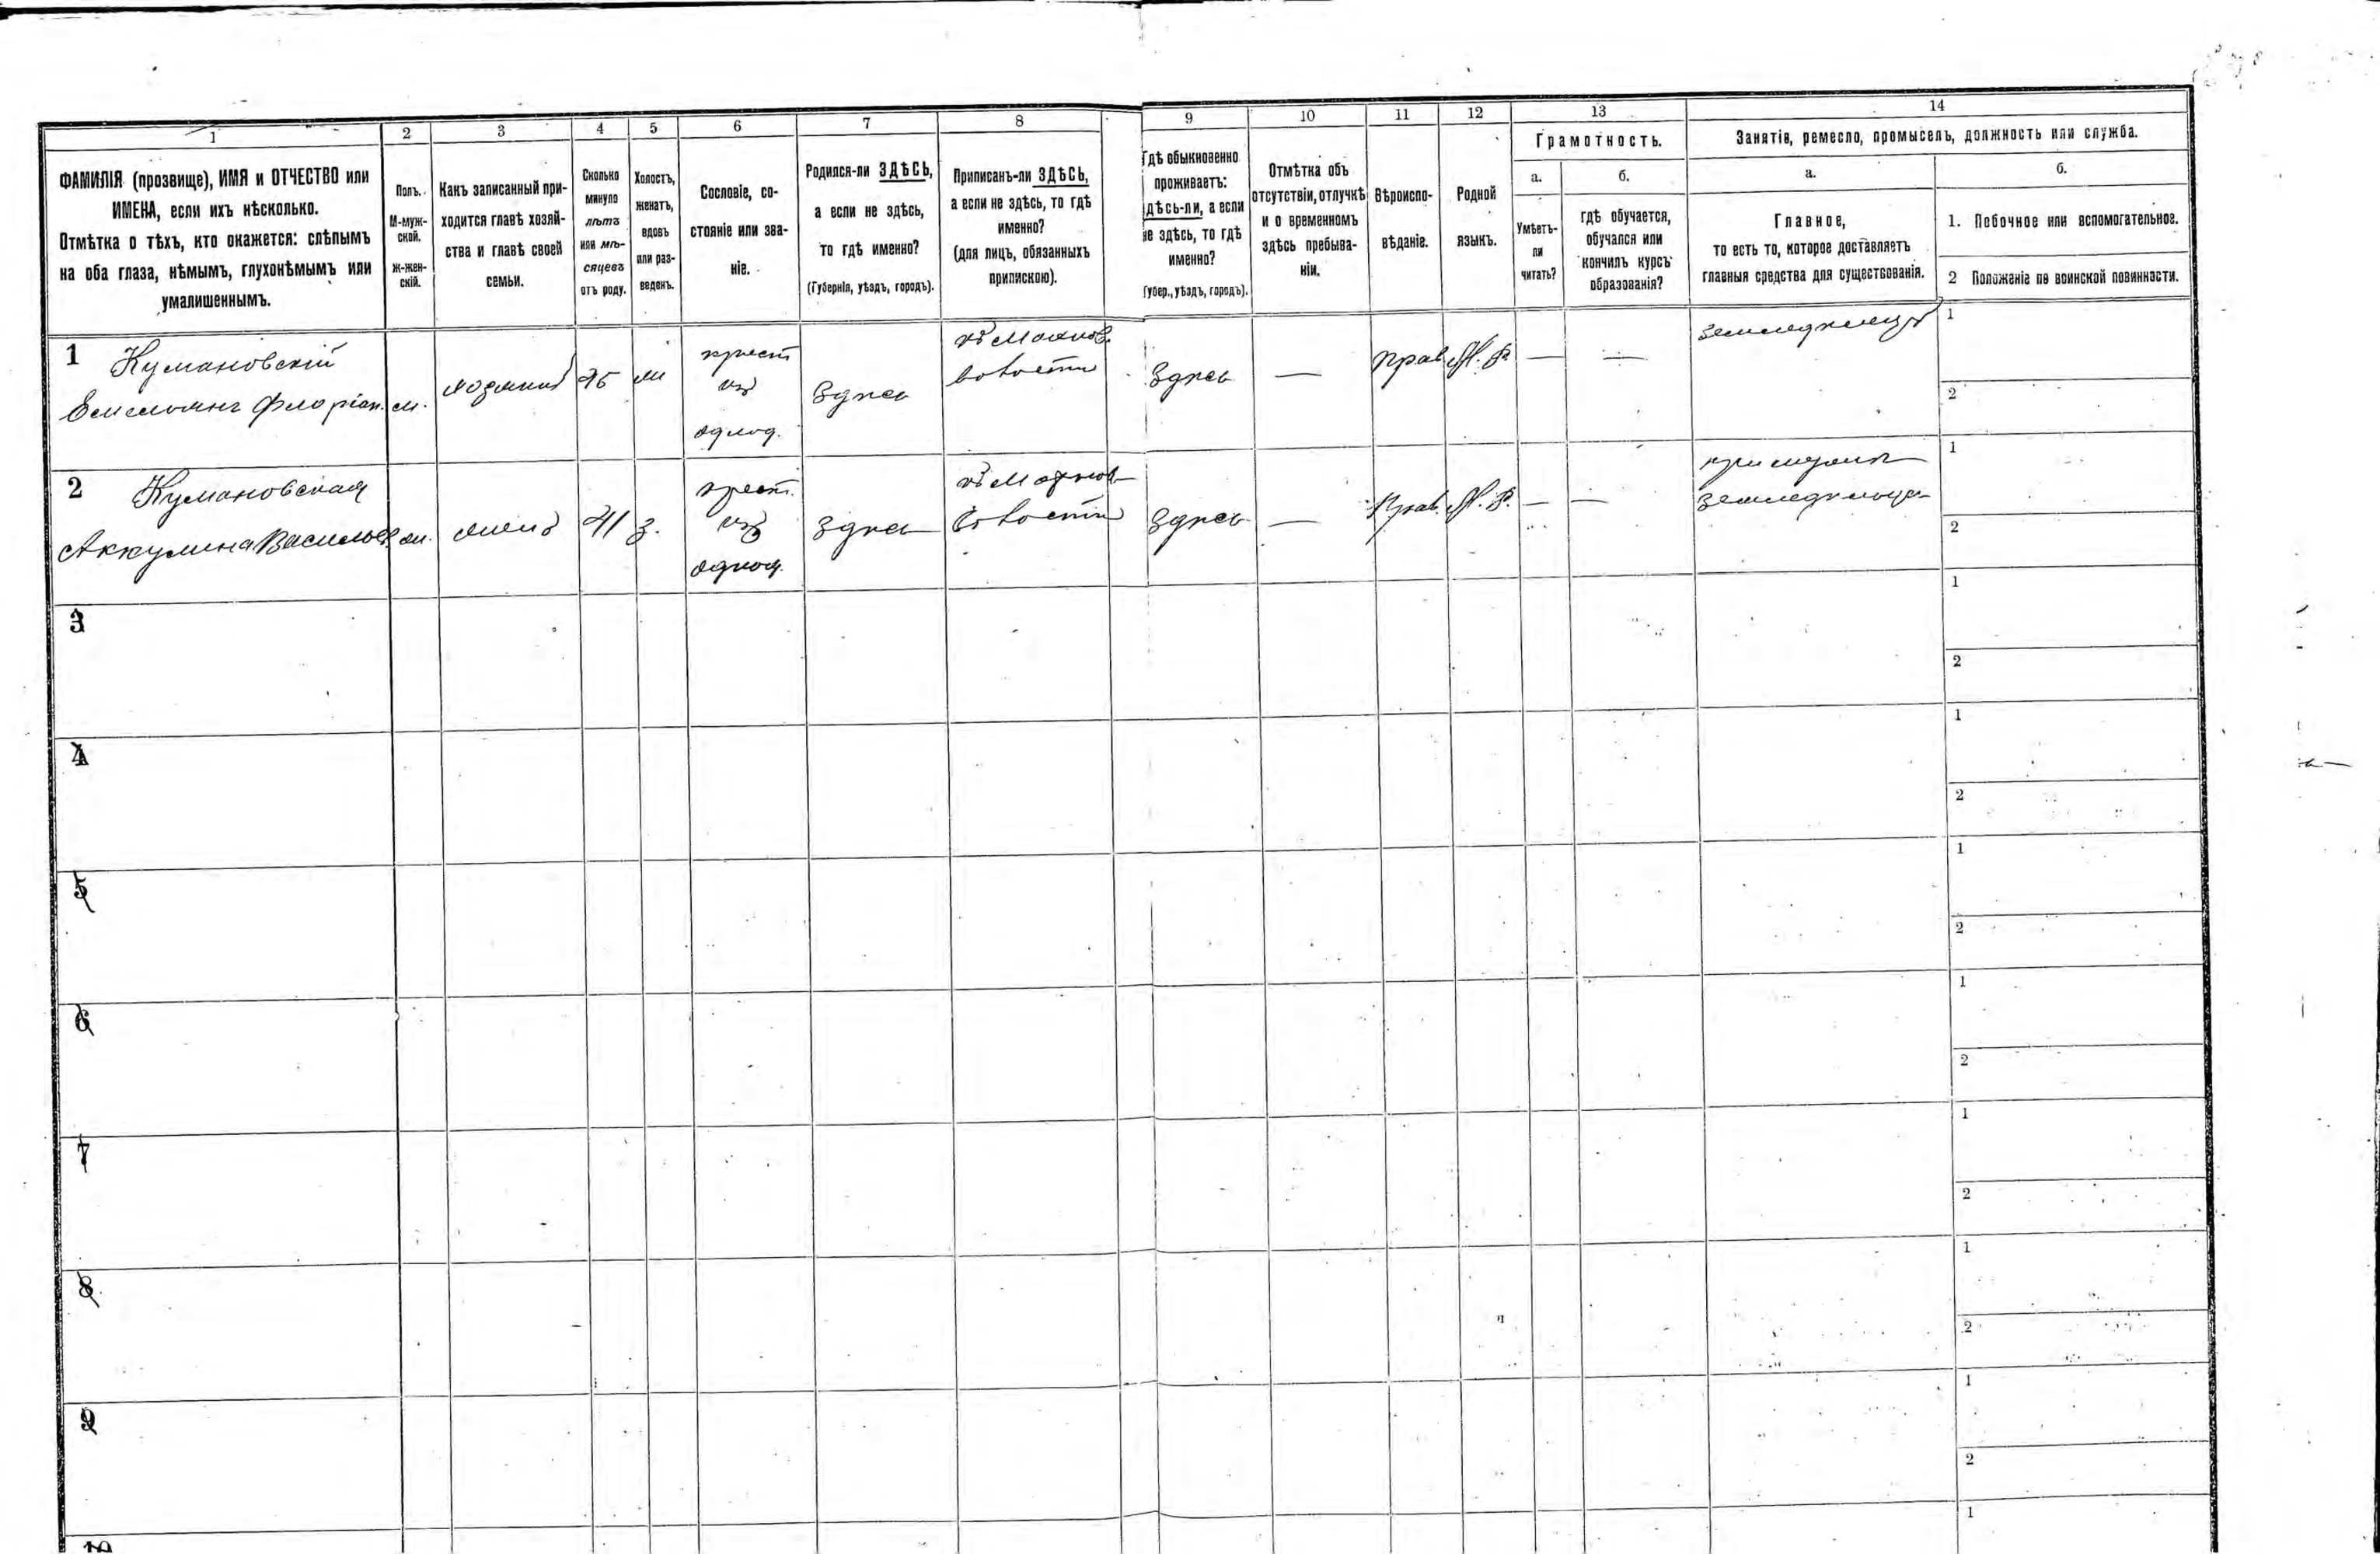 1 2 3 4 5 6 7 8 9 10 11 12 13 14
ФАМИЛІЯ (прозвище), ИМЯ и ОТЧЕСТВО или
ИМЕНА, если ихъ нѣсколько.
Отмѣтка о тѣхъ, кто окажется: слѣпымъ
на оба глаза, нѣмымъ, глухонѣмымъ или
умалишеннымъ.
Полъ.
М-муж-
ской.
Ж-жен-
скій.
Какъ записанный при-
ходится главѣ хозяй-
ства и главѣ своей
семьи.
Сколько
минуло
лѣтъ
или мѣ-
сяцевъ
отъ роду.
Холостъ,
женатъ,
вдовъ
или раз-
веденъ.
Сословіе, со-
стояніе или зва-
ніе.
Родился-ли ЗДѢСЬ,
а если не здѣсь,
то гдѣ именно?
(Губернія, уѣздъ, городъ).
Приписанъ-ли ЗДѢСЬ,
а если не здѣсь, то гдѣ
именно?
(для лицъ, обязанныхъ
припискою).
Гдѣ обыкновенно
проживаетъ:
здѣсь-ли, а если
не здѣсь, то гдѣ
именно?
(губер., уѣздъ, городъ).
Отмѣтка объ
отсутствіи, отлучкѣ
и о временномъ
здѣсь пребыва-
ніи.
Вѣроиспо-
вѣданіе.
Родной
языкъ.
Грамотность.
а.
Умѣетъ-
ли
читать?
б.
гдѣ обучается,
обучался или
кончилъ курсъ
образованія?
Занятія, ремесло, промыселъ, должность или служба.
а.
Главное,
то есть то, которое доставляетъ
главныя средства для существованія.
б.
1. Побочное или вспомогательное.
2 Положеніе по воинской повинности.
1 Кумановскій
Емельянъ Флоріан. м.
крест
из
однод.
Здѣсь
волости
Здѣсь
—
прав.
М. Р.
—
—
земледѣлецъ
1
2
2 Кумановская
Аккулина Васильев.
жена
41
з.
крест.
из
однод.
Здѣсь
волости
Здѣсь
—
Прав.
М. Р.
—
—
при мужѣ
земледѣльца
1
2
3
1
2
4
1
2
5
1
2
6
1
2
7
1
2
8
1
2
9
1
2
10
1